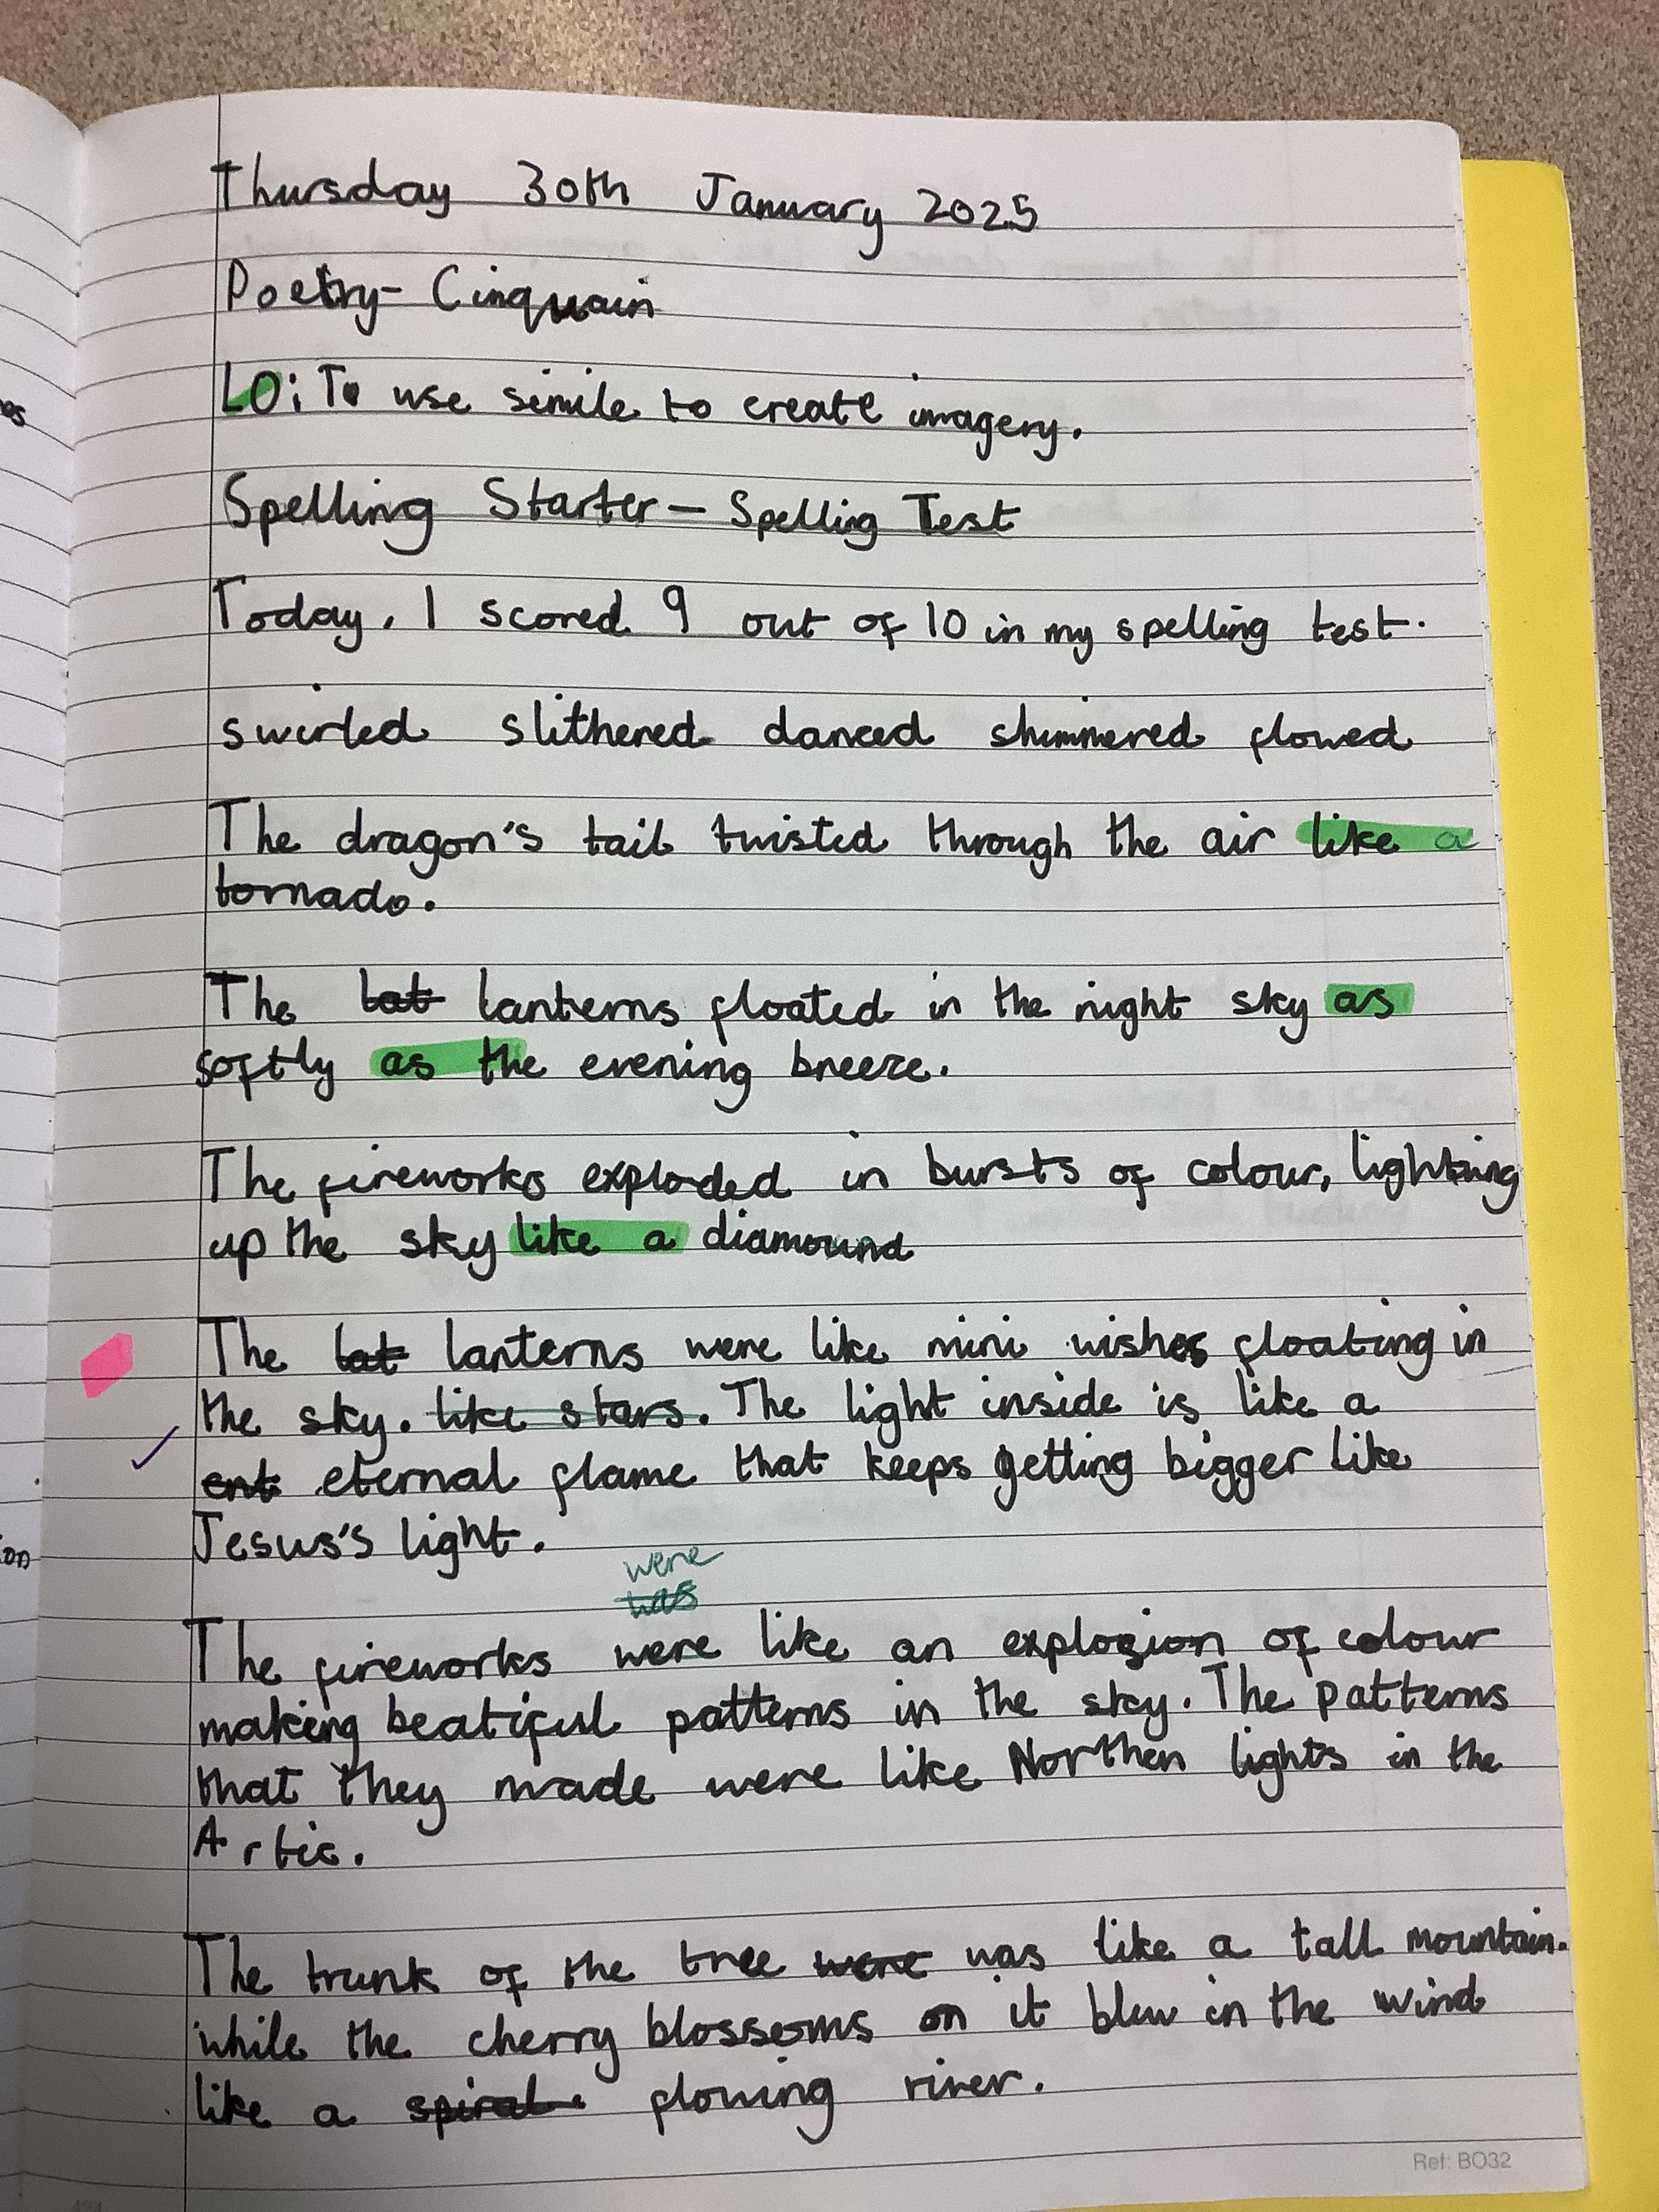 Thursday 30th January 2025
Poetry- Cinquain
LO: To use simile to create imagery.
Spelling Starter - Spelling Test
Today, I scored 9 out of 10 in my spelling test.
swirled slithered danced shimmered flowed
The dragon's tail twisted through the air like a
tornado.
The lat lanterns floated in the night sky as
softly as the evening breeze.
The fireworks exploded in bursts of colour, lightning
up the sky like a diamound
The lat lanterns were like mini wishes floating in
the sky. like stars. The light inside is like a
ent eternal flame that keeps getting bigger like
Jesus's light.
were
was
The fireworks were like an explosion of colour
making beatiful patterns in the sky. The patterns
that they made were like Northen lights in the
Artic.
The trunk of the tree were was like a tall mountain.
while the cherry blossoms on it blew in the wind
like a spiral. flowing river.
Ref: BO32
424